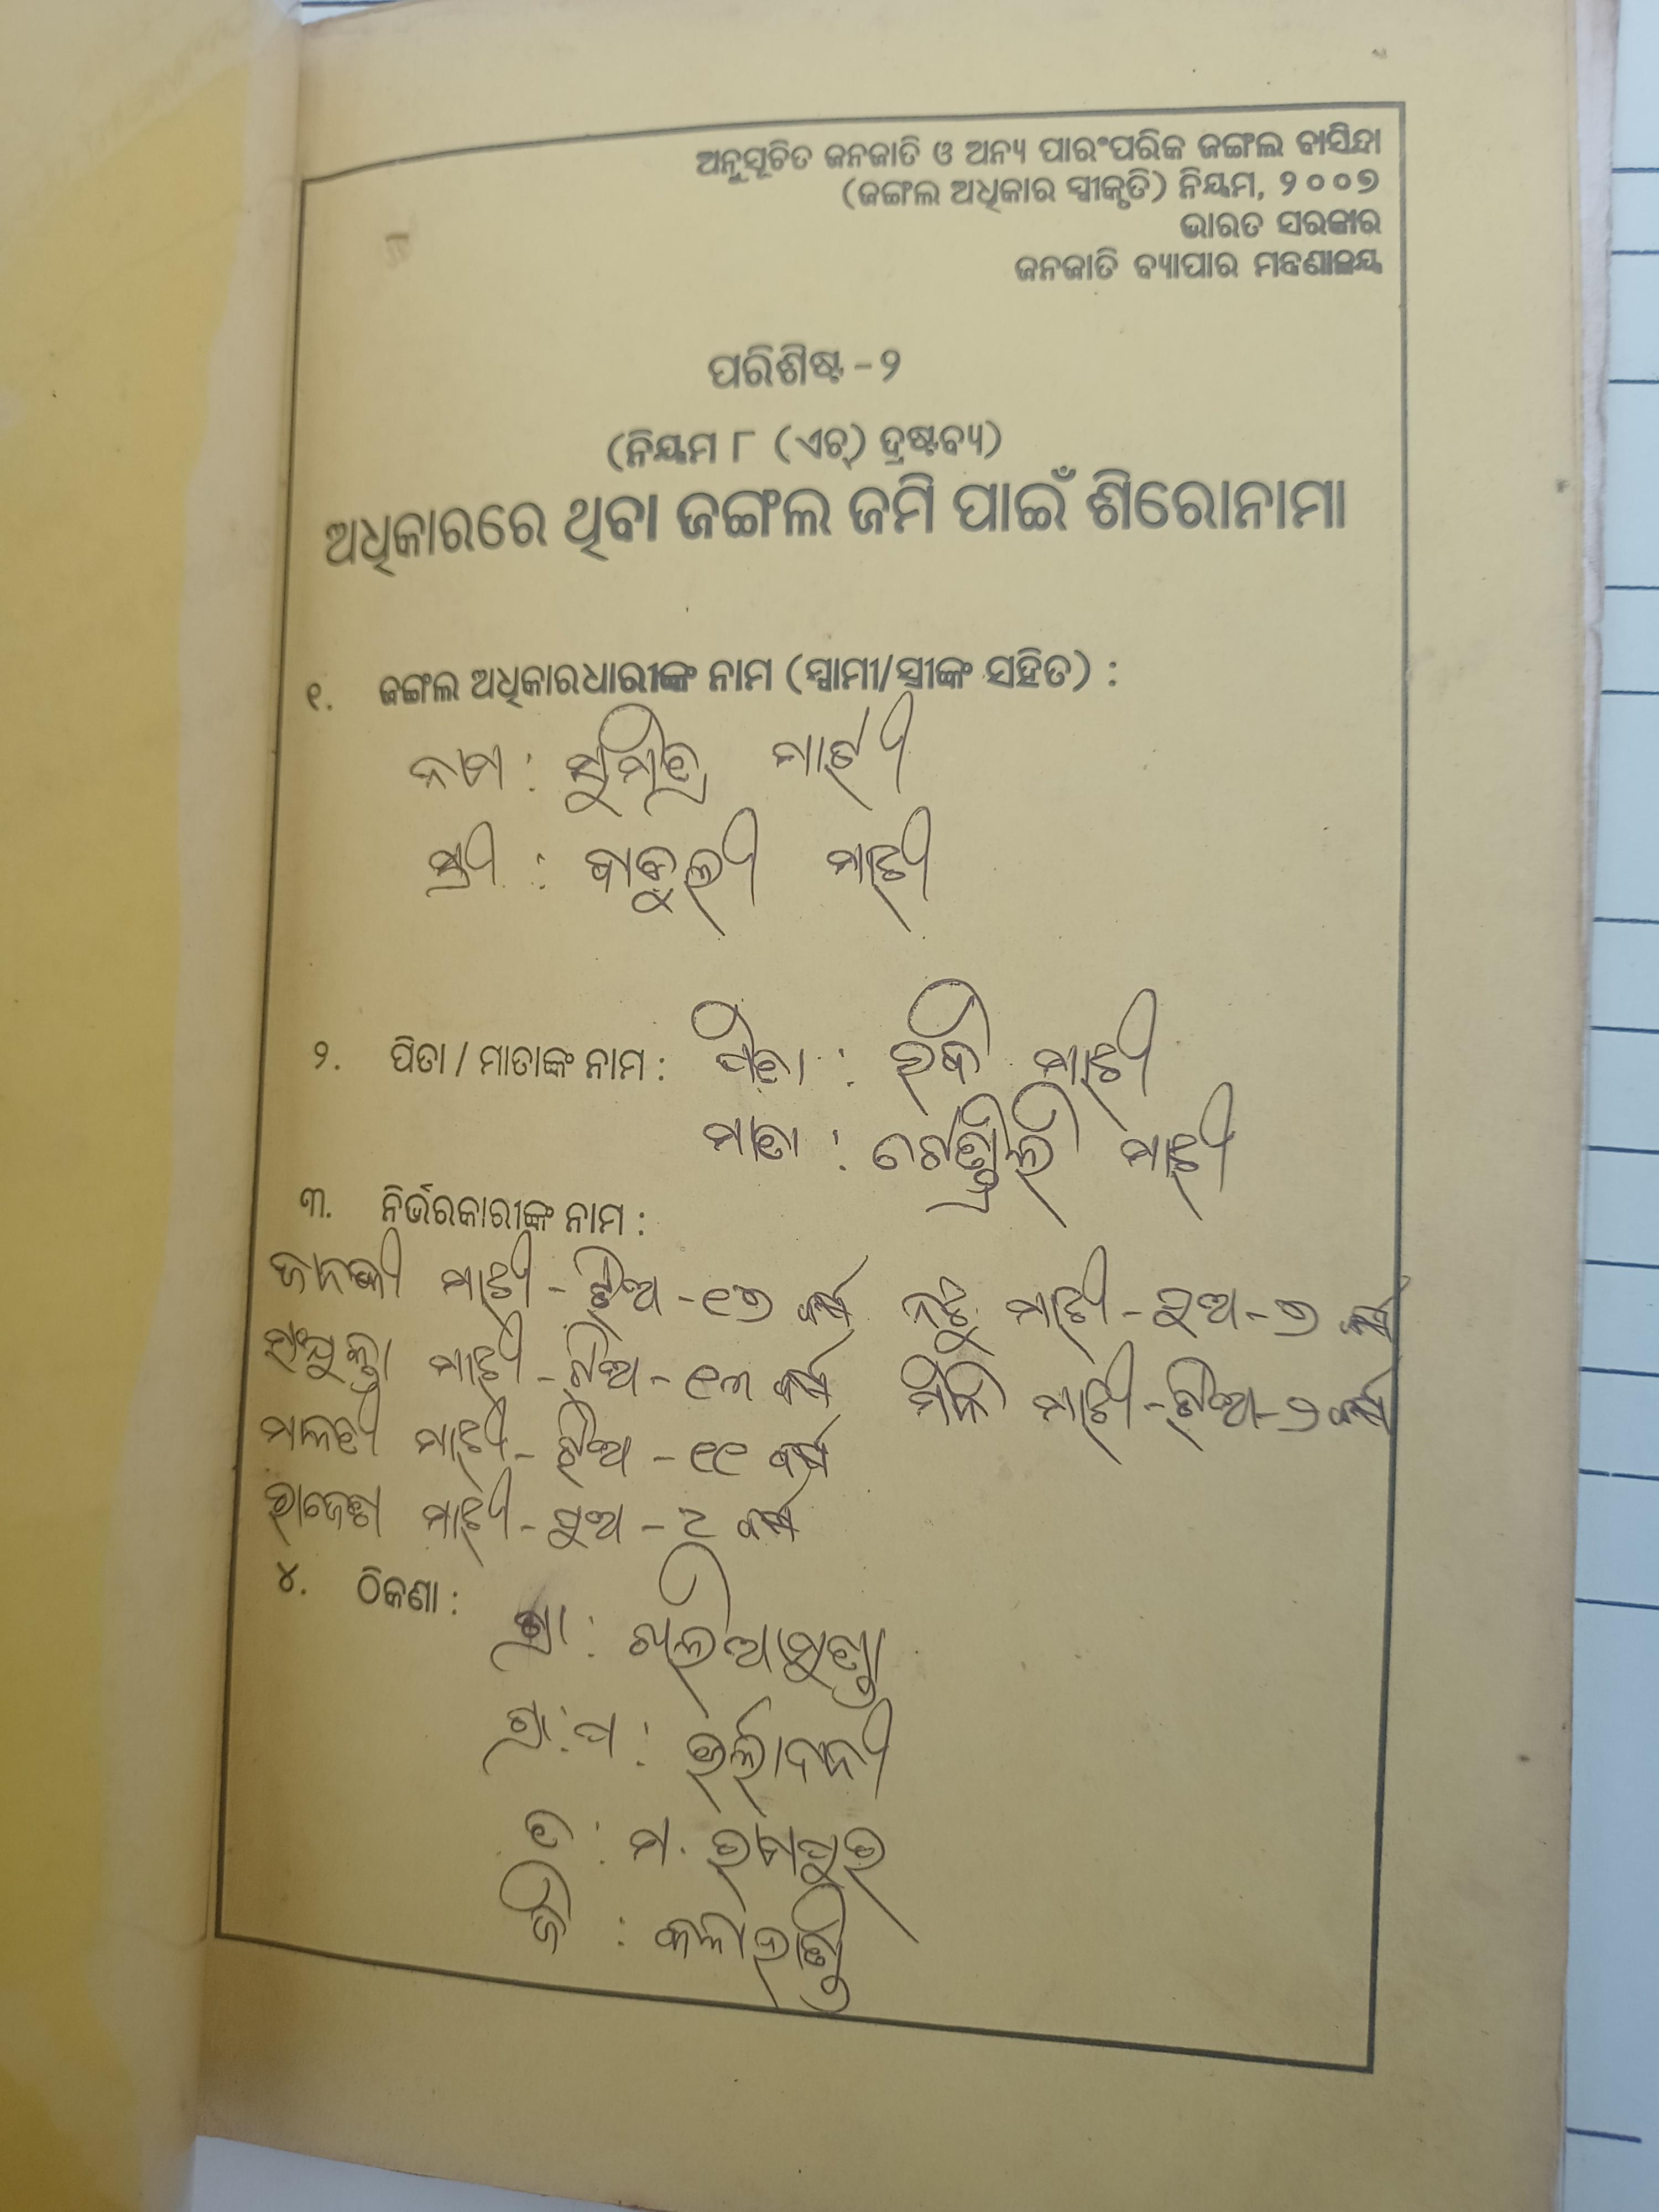 ଅନୁସୂଚିତ ଜନଜାତି ଓ ଅନ୍ୟ ପାରଂପରିକ ଜଙ୍ଗଲ ବାସିନ୍ଦା
(ଜଙ୍ଗଲ ଅଧିକାର ସ୍ୱୀକୃତି) ନିୟମ, ୨୦୦୭
ଭାରତ ସରକାର
ଜନଜାତି ବ୍ୟାପାର ମନ୍ତ୍ରଣାଳୟ
ପରିଶିଷ୍ଟ - ୨
(ନିୟମ ୮ (ଏଚ୍) ଦ୍ରଷ୍ଟବ୍ୟ)
ଅଧିକାରରେ ଥିବା ଜଙ୍ଗଲ ଜମି ପାଇଁ ଶିରୋନାମା
୧. ଜଙ୍ଗଲ ଅଧିକାରଧାରୀଙ୍କ ନାମ (ସ୍ୱାମୀ/ସ୍ତ୍ରୀଙ୍କ ସହିତ) :
ନାମ : ସୁମିତ୍ର ମାଝୀ
ସ୍ତ୍ରୀ : ବାବୁଲୀ ମାଝୀ
୨. ପିତା / ମାତାଙ୍କ ନାମ : ପିତା : ରବି ମାଝୀ
ମାତା : ମାଝୀ
୩. ନିର୍ଭରକାରୀଙ୍କ ନାମ :
ଜାନକୀ ମାଝୀ - ଝିଅ - ୧୭ ବର୍ଷ ମାଝୀ - ପୁଅ - ୭ ବର୍ଷ
ସଂଯୁକ୍ତା ମାଝୀ - ଝିଅ - ୧୩ ବର୍ଷ ମିନି ମାଝୀ - ଝିଅ - ବର୍ଷ
ମାଳତୀ ମାଝୀ - ଝିଅ - ୧୧ ବର୍ଷ
ରାଜେଶ ମାଝୀ - ପୁଅ - ବର୍ଷ
୪. ଠିକଣା : ଗ୍ରା :
ଗ୍ରା:ପ :
ତ : ମ. ରାମପୁର
ଜି : କଳାହାଣ୍ଡି